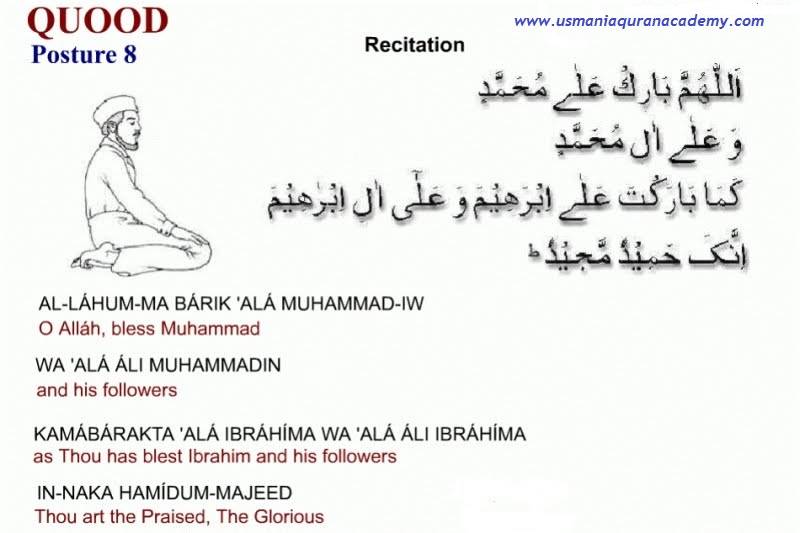 QUOOD
www.usmaniaquranacademy.com
Posture 8
Recitation
اَللّٰهُمَّ بَارِكْ عَلٰے مُحَمَّدٍ
وَ عَلٰے اٰلِ مُحَمَّدٍ
كَمَا بَارَكْتَ عَلٰے اِبْرَهِيْمَ وَ عَلٰٓى اٰلِ اِبْرٰهِيْمَ
اِنَّكَ حَمِيْدٌ مَّجِيْدٌ ؕ
AL-LÁHUM-MA BÁRIK 'ALÁ MUHAMMAD-IW
O Alláh, bless Muhammad
WA 'ALÁ ÁLI MUHAMMADIN
and his followers
KAMÁBÁRAKTA 'ALÁ IBRÁHÍMA WA 'ALÁ ÁLI IBRÁHÍMA
as Thou has blest Ibrahim and his followers
IN-NAKA HAMÍDUM-MAJEED
Thou art the Praised, The Glorious